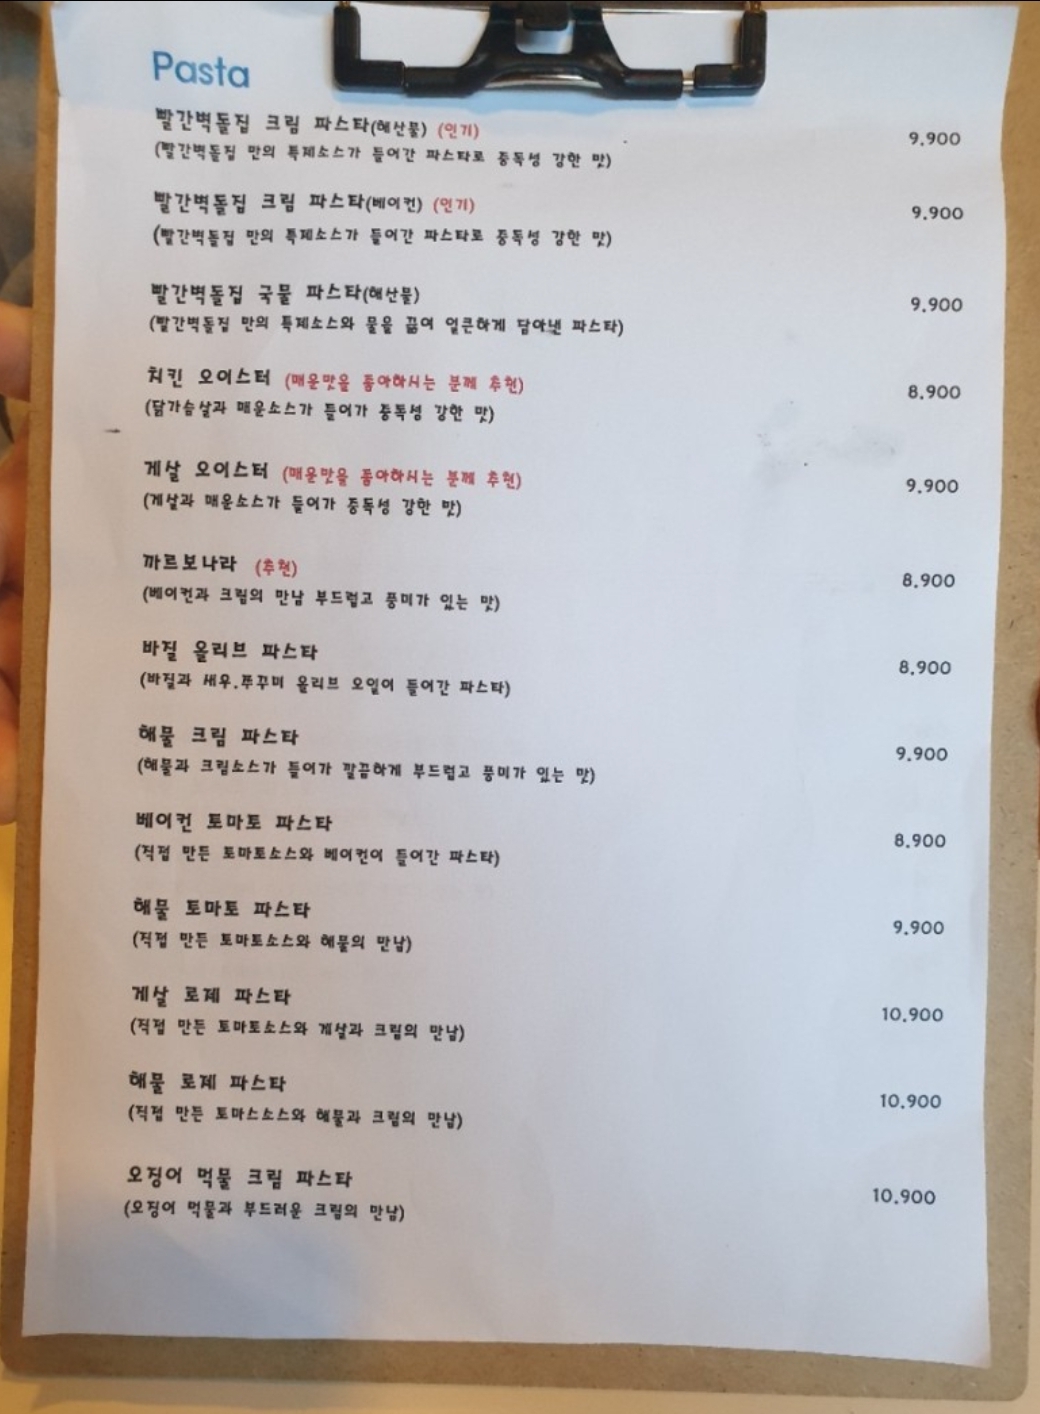 Pasta
빨간벽돌집 크림 파스타(해산물) (인기) 9,900
(빨간벽돌집 만의 특제소스가 들어간 파스타로 중독성 강한 맛)
빨간벽돌집 크림 파스타(베이컨) (인기) 9,900
(빨간벽돌집 만의 특제소스가 들어간 파스타로 중독성 강한 맛)
빨간벽돌집 국물 파스타(해산물) 9,900
(빨간벽돌집 만의 특제소스와 물을 끓여 얼큰하게 담아낸 파스타)
치킨 오이스터 (매운맛을 좋아하시는 분께 추천) 8,900
(닭가슴살과 매운소스가 들어가 중독성 강한 맛)
게살 오이스터 (매운맛을 좋아하시는 분께 추천) 9,900
(게살과 매운소스가 들어가 중독성 강한 맛)
까르보나라 (추천) 8,900
(베이컨과 크림의 만남 부드럽고 풍미가 있는 맛)
바질 올리브 파스타 8,900
(바질과 새우.쭈꾸미 올리브 오일이 들어간 파스타)
해물 크림 파스타 9,900
(해물과 크림소스가 들어가 깔끔하게 부드럽고 풍미가 있는 맛)
베이컨 토마토 파스타 8,900
(직접 만든 토마토소스와 베이컨이 들어간 파스타)
해물 토마토 파스타 9,900
(직접 만든 토마토소스와 해물의 만남)
게살 로제 파스타 10,900
(직접 만든 토마토소스와 게살과 크림의 만남)
해물 로제 파스타 10,900
(직접 만든 토마스소스와 해물과 크림의 만남)
오징어 먹물 크림 파스타 10,900
(오징어 먹물과 부드러운 크림의 만남)